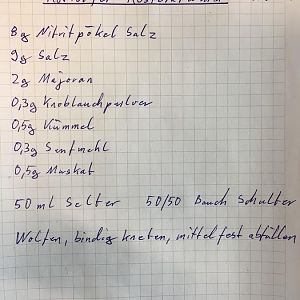 8g Nitritpökel Salz
9g Salz
2g Majoran
0,3g Knoblauchpulver
0,5g Kümmel
0,3g Senfmehl
0,5g Muskat
50 ml Selter 50/50 Bauch Schulter
Wolfen, bindig kneten, mittelfest abfüllen